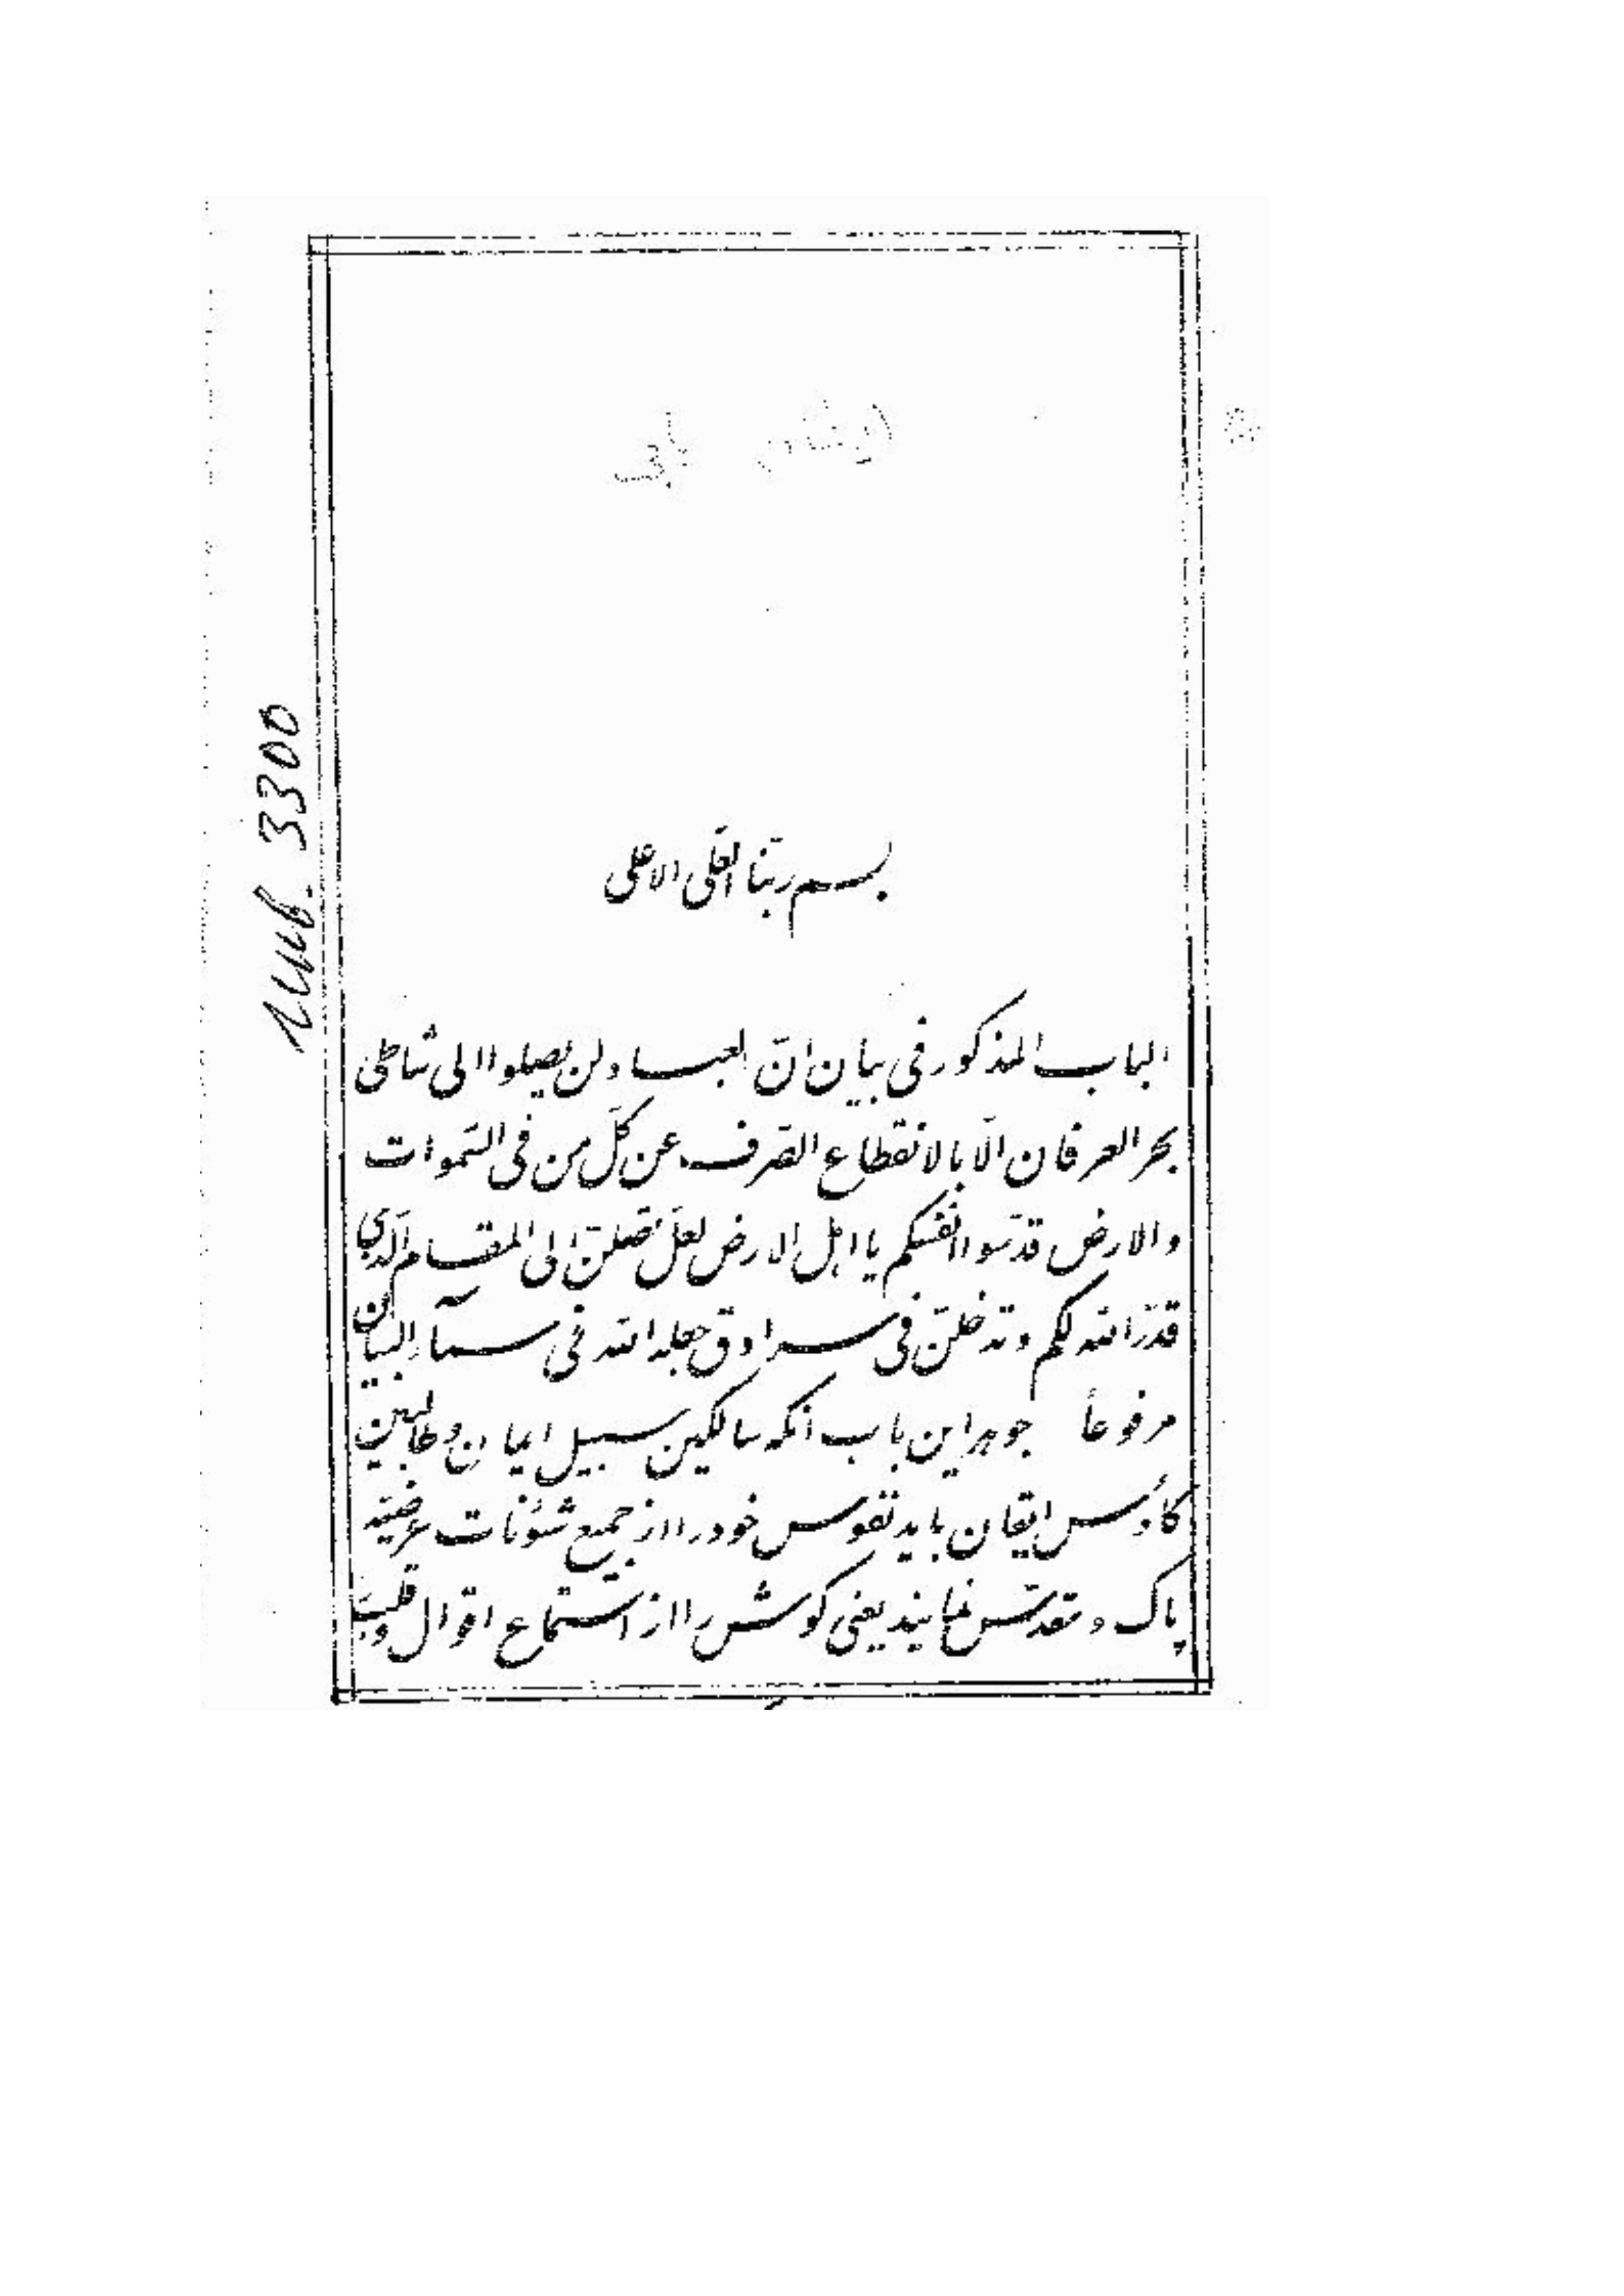 بسم ربّنا العلّی الاعلی
الباب المذکور فی بیان انّ العباد لن یصلوا الی شاطی
بحر العرفان الّا بالانقطاع الصّرف عن کلّ من فی السّموات
والارض قدّسوا انفسکم یا اهل الارض لعلّ تصلنّ الی المقام الّذی
قدّر الله لکم و تدخلنّ فی سرادق جعله الله فی سمآء البیان
مرفوعاً جوهر این باب آنکه سالکین سبیل ایمان و طالبین
کأوس ایقان باید نفوس خود را از جمیع شئونات عرضیّه
پاک و مقدّس نمایند یعنی کوش را از استماع اقوال و قلب
Инв. 3300